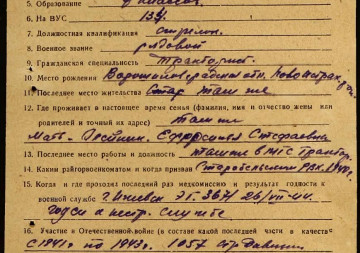 5. Образование классов
6. На ВУС 134
7. Должностная квалификация стрелок
8. Военное звание рядовой
9. Гражданская специальность тракторист.
10. Место рождения Ворошиловградская обл.
11. Последнее место жительства там же
12. Где проживает в настоящее время семья (фамилия, имя и отчество жены или
родителей и точный их адрес) там же
Мать
13. Последнее место работы и должность там же в МТС тракторист
14. Каким райгорвоенкоматом и когда призван Старобельским РВК
15. Когда и где проходил последний раз медкомиссию и результат годности к
военной службе г. Ижевск ЭГ. 3671 26/VII-44.
годен к нестр. службе
16. Участие в Отечественной войне (в составе какой последней части в качестве
с 1941 по 1943 г. 1057 стр